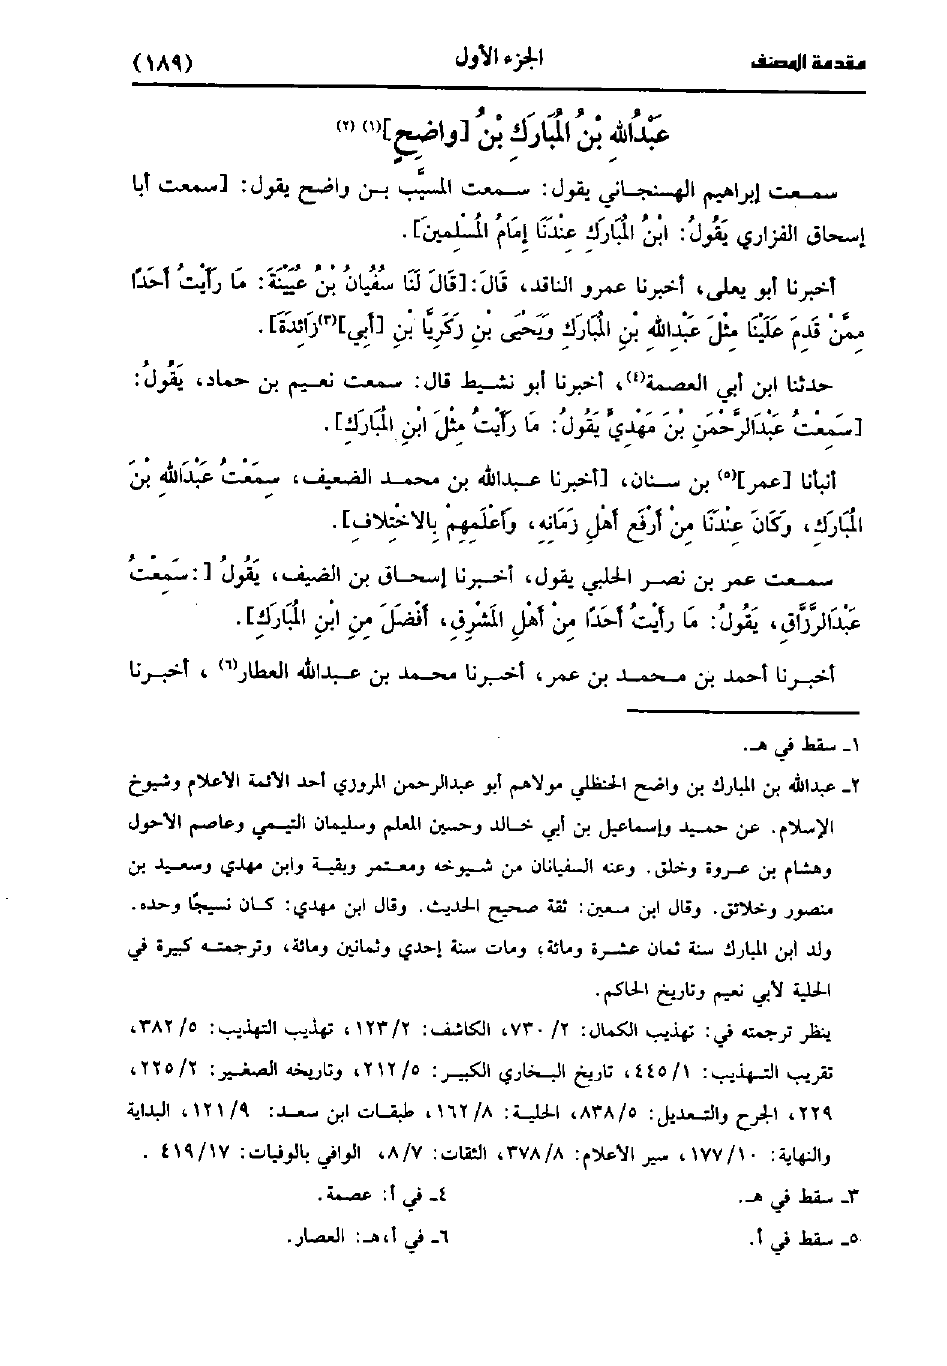 مقدمة المصنف الجزء الأول (١٨٩)
عَبْدُاللهِ بْنُ الْمُبَارَكِ بْنُ [واضِحٍ](١) (٢)
سمعت إبراهيم الهسنجاني يقول: سمعت المسيَّب بن واضح يقول: [سمعت أبا
إسحاق الفزاري يَقُولُ: ابْنُ الْمُبَارَكِ عِنْدَنَا إِمَامُ الْمُسْلِمِينَ].
أخبرنا أبو يعلى، أخبرنا عمرو الناقد، قَالَ: [قَالَ لَنَا سُفْيَانُ بْنُ عُيَيْنَةَ: مَا رَأَيْتُ أَحَدًا
مِمَّنْ قَدِمَ عَلَيْنَا مِثْلَ عَبْدِاللهِ بْنِ الْمُبَارَكِ وَيَحْيَى بْنِ زَكَرِيَّا بْنِ [أَبِي](٣)زَائِدَةَ].
حدثنا ابن أبي العصمة(٤)، أخبرنا أبو نشيط قال: سمعت نعيم بن حماد، يَقُولُ:
[سَمِعْتُ عَبْدَالرَّحْمَنِ بْنَ مَهْدِيٍّ يَقُولُ: مَا رَأَيْتُ مِثْلَ ابْنِ الْمُبَارَكِ].
أنبأنا [عمر](٥) بن سنان، [أخبرنا عبدالله بن محمد الضعيف، سمِعْتُ عَبْدَاللهِ بْنَ
الْمُبَارَكِ، وَكَانَ عِنْدَنَا مِنْ أَرْفَعِ أَهْلِ زَمَانِهِ، وَأَعْلَمِهِمْ بِالاخْتِلافِ].
سمعت عمر بن نصر الحلبي يقول، أخبرنا إسحاق بن الضيف، يَقُولُ [:سَمِعْتُ
عَبْدَالرَّزَّاقِ، يَقُولُ: مَا رَأَيْتُ أَحَدًا مِنْ أَهْلِ الْمَشْرِقِ، أَفْضَلَ مِنِ ابْنِ الْمُبَارَكِ].
أخبرنا أحمد بن محمد بن عمر، أخبرنا محمد بن عبدالله العطار(٦)، أخبرنا
١ـ سقط في هـ.
٢ـ عبدالله بن المبارك بن واضح الحنظلي مولاهم أبو عبدالرحمن المروزي أحد الأئمة الأعلام وشيوخ
الإسلام. عن حميد وإسماعيل بن أبي خالد وحسين المعلم وسليمان التيمي وعاصم الأحول
وهشام بن عروة وخلق. وعنه السفيانان من شيوخه ومعتمر وبقية وابن مهدي وسعيد بن
منصور وخلائق. وقال ابن معين: ثقة صحيح الحديث. وقال ابن مهدي: كان نسيجًا وحده.
ولد ابن المبارك سنة ثمان عشرة ومائة، ومات سنة إحدي وثمانين ومائة، وترجمته كبيرة في
الحلية لأبي نعيم وتاريخ الحاكم.
ينظر ترجمته في: تهذيب الكمال: ٧٣٠/٢، الكاشف: ١٢٣/٢، تهذيب التهذيب: ٣٨٢/٥،
تقريب التهذيب: ٤٤٥/١، تاريخ البخاري الكبير: ٢١٢/٥، وتاريخه الصغير: ٢٢٥/٢،
٢٢٩، الجرح والتعديل: ٨٣٨/٥، الحلية: ١٦٢/٨، طبقات ابن سعد: ١٢١/٩، البداية
والنهاية: ١٧٧/١٠، سير الأعلام: ٣٧٨/٨، الثقات: ٨/٧، الوافي بالوفيات: ٤١٩/١٧.
٣ـ سقط في هـ. ٤ـ في أ: عصمة.
٥ـ سقط في أ. ٦ـ في أ،هـ: العصار.